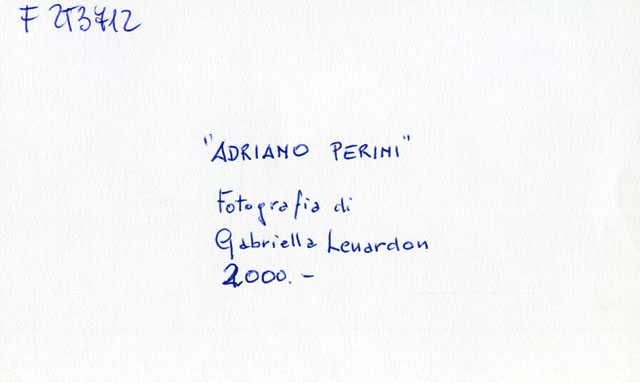 F 253712
"ADRIANO PERINI"
Fotografia di
Gabriella Lenardon
2000.-